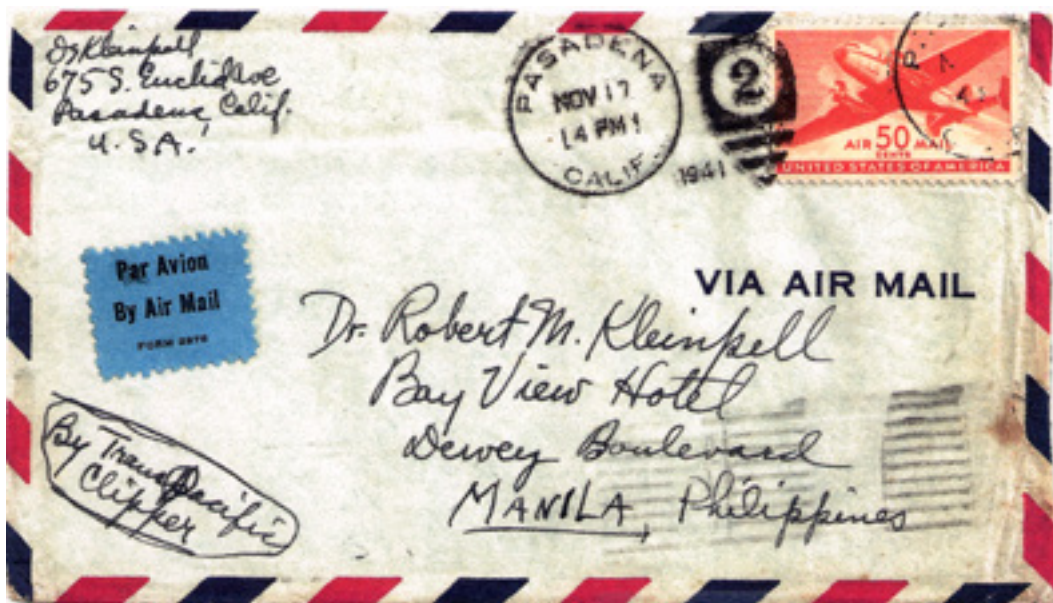 Kleinpell
675 S. Euclid Ave
Pasadena, Calif.
U.S.A.
PASADENA
NOV 17
4 PM
CALIF.
1941
2
AIR 50 MAIL
CENTS
UNITED STATES OF AMERICA
Par Avion
By Air Mail
FORM
VIA AIR MAIL
Dr. Robert M. Kleinpell
Bay View Hotel
Dewey Boulevard
MANILA, Philippines
By Trans Pacific
Clipper